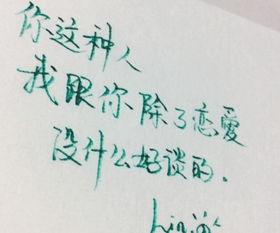 你这种人
我跟你除了恋爱
没什么好谈的.